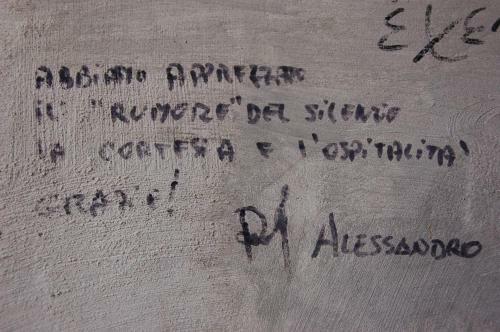 EXE
ABBIAMO APPREZZATO
IL "RUMORE" DEL SILENZIO
LA CORTESIA E L'OSPITALITA'
GRAZIE!
ALESSANDRO